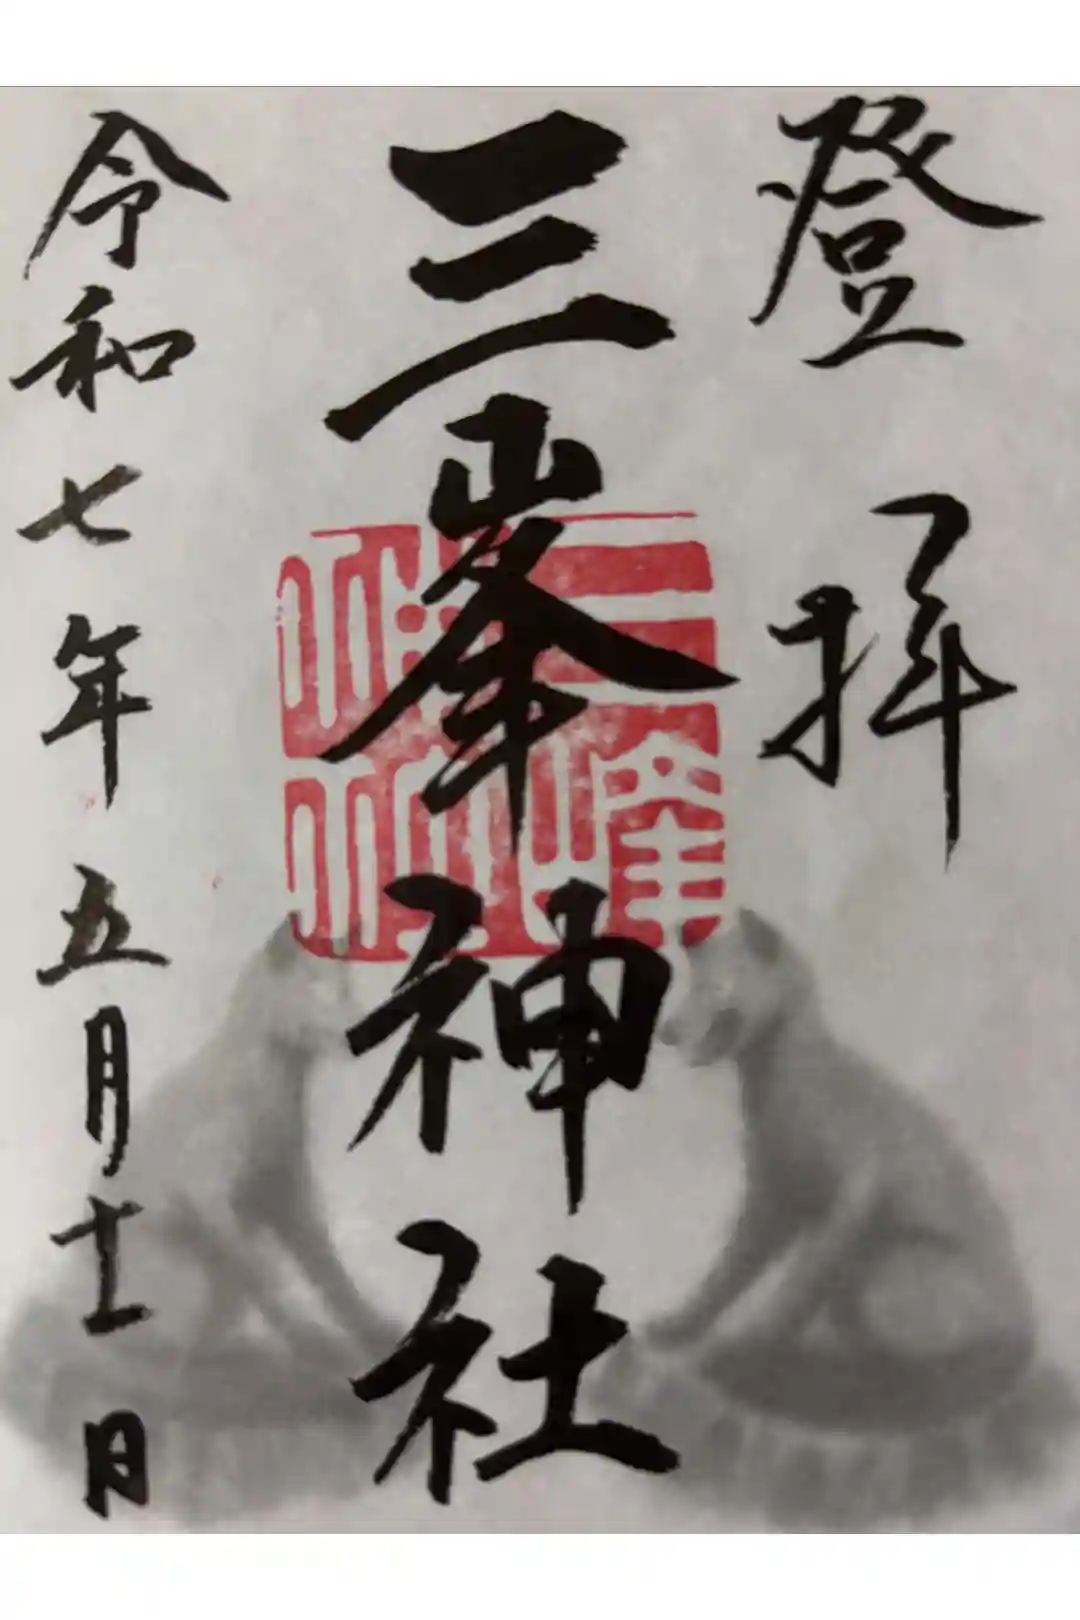 登拝
三峯神社
令和七年五月十一日